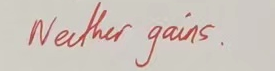 Neither gains.